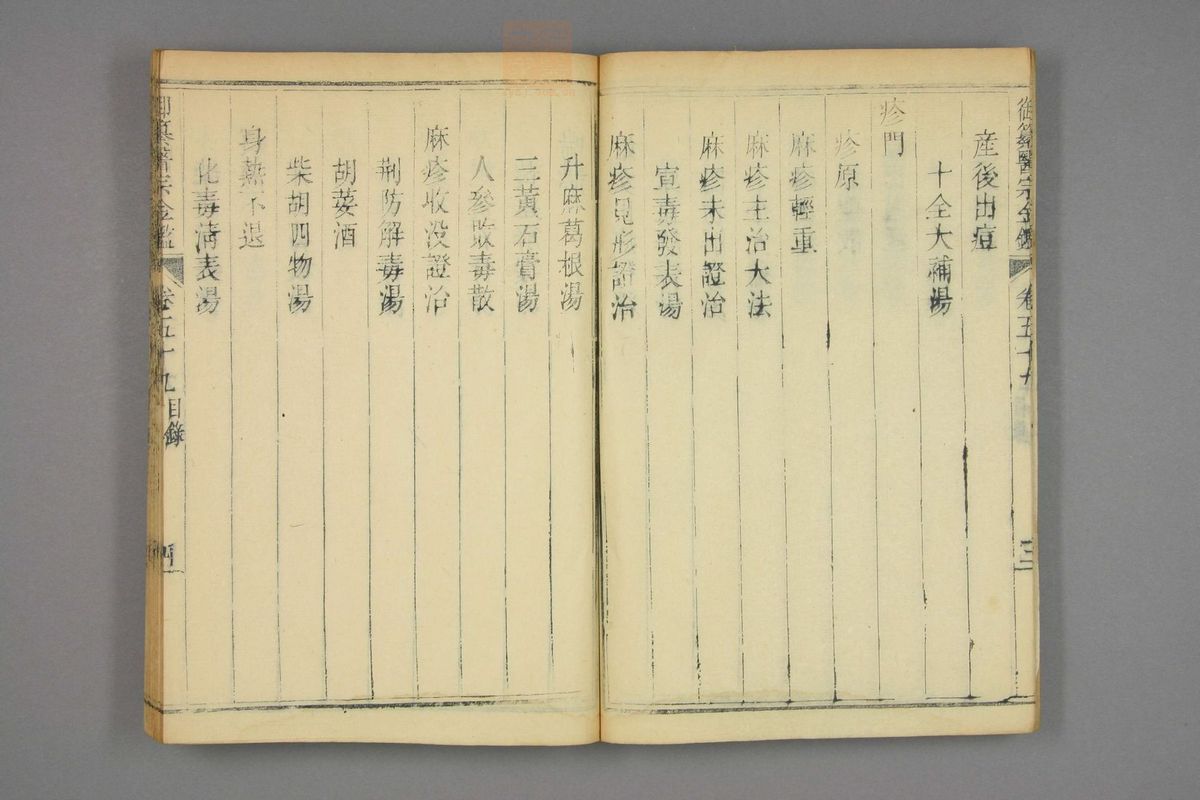 御纂醫宗金鑑 卷五十九
三
產後出痘
十全大補湯
疹門
疹原
麻疹輕重
麻疹主治大法
麻疹未出證治
宣毒發表湯
麻疹見形證治
升麻葛根湯
三黃石膏湯
人參敗毒散
麻疹收没證治
荊防解毒湯
胡荽酒
柴胡四物湯
身熱不退
化毒清表湯
御纂醫宗金鑑 卷五十九目錄
四